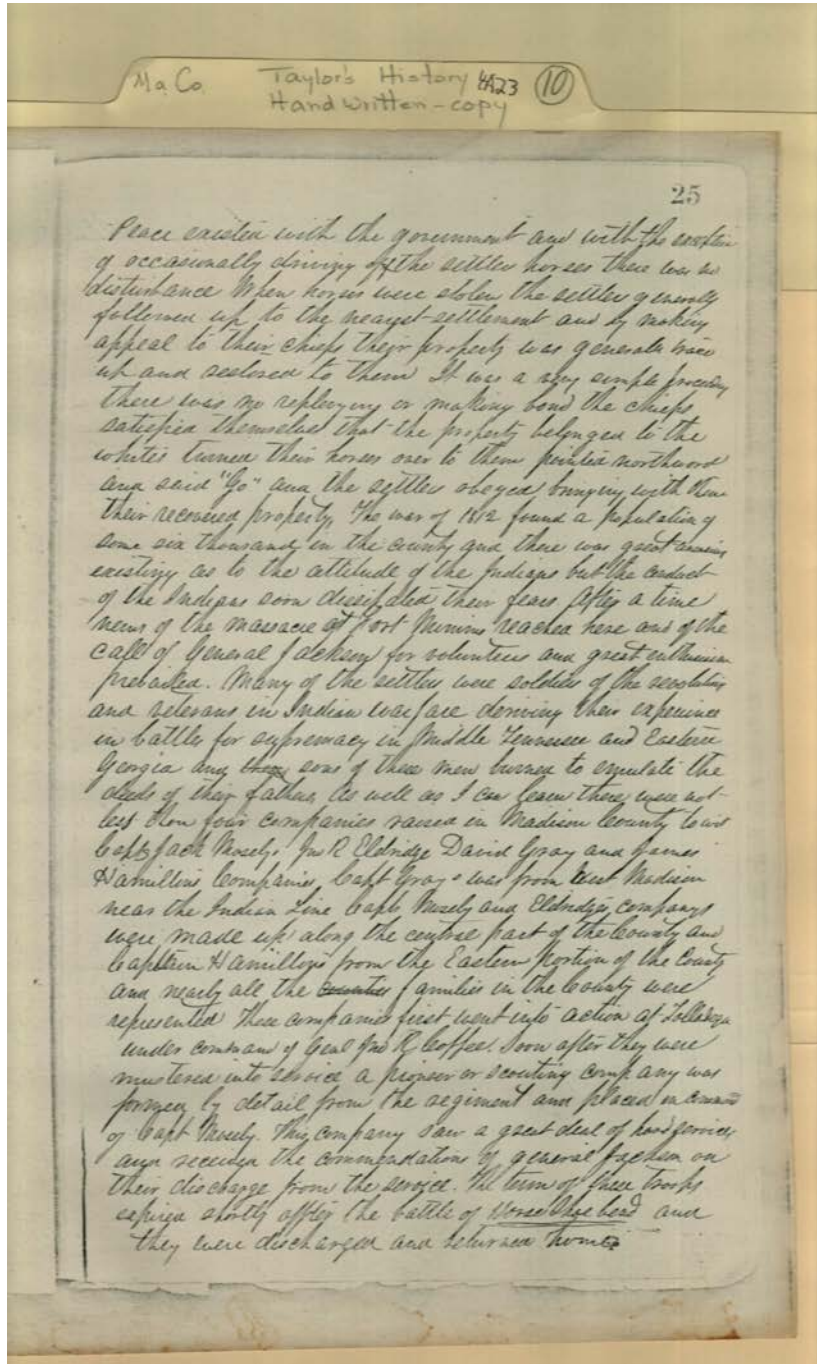 Ma. Co. Taylor's History 4A23 10
Hand written - copy
25
Peace existed with the government and with the exception
of occasionally driving off the settlers horses there was no
disturbance When horses were stolen the settlers generally
followed up to the nearest settlement and by making
appeal to their chiefs their property was generally
up and restored to them It was a very simple proceeding
there was no replevying or making bond the chiefs
satisfied themselves that the property belonged to the
whites turned their horses over to them pointed northward
and said "Go" and the settlers obeyed bringing with them
their recovered property. The war of 1812 found a population of
some six thousand in the county and there was great
existing as to the attitude of the Indians but the conduct
of the Indians soon dissipated their fears After a time
news of the massacre at Fort Mimms reached here and of the
call of General Jackson for volunteers and great enthusiasm
prevailed. Many of the settlers were soldiers of the revolution
and veterans in Indian warfare deriving their experience
in battles for supremacy in Middle Tennessee and Eastern
Georgia and sons of these men burned to emulate the
deeds of their fathers As well as I can learn there were not
less than four companies raised in Madison County to wit
Capts Jack Mosely, Jno R Eldridge David Gray and James
Hamiltons Companies, Capt Gray's was from West Madison
near the Indian Line Capts Mosely and Eldridges companys
were made up along the central part of the County and
Captain Hamiltons from the Eastern Portion of the County
and nearly all the counties families in the County were
represented These companies first went into action at
under command of Genl Jno R Coffee. Soon after they were
mustered into service a pioneer or scouting company was
formed by detail from the regiment and placed in command
of Capt Mosely. This company saw a great deal of hard service
and received the commendations of general Jackson on
their discharge from the service. The term of these troops
expired shortly after the battle of Horse Shoe bend and
they were discharged and returned home